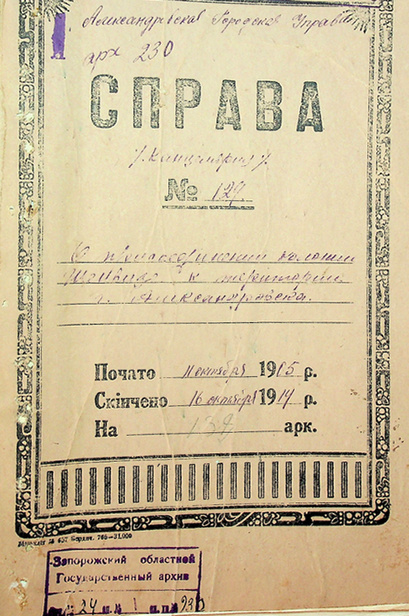 Александровская Городская Управа
арх 230
СПРАВА
/Канцелярия/.
№ 129
О присоединении колонии
Шенвизе к территории
г. Александровска.
Почато 11 октября 1905 р.
Скінчено 16 октября 1914 р.
На 132 арк.
Запорожский областной
Государственный архив
24 1 230